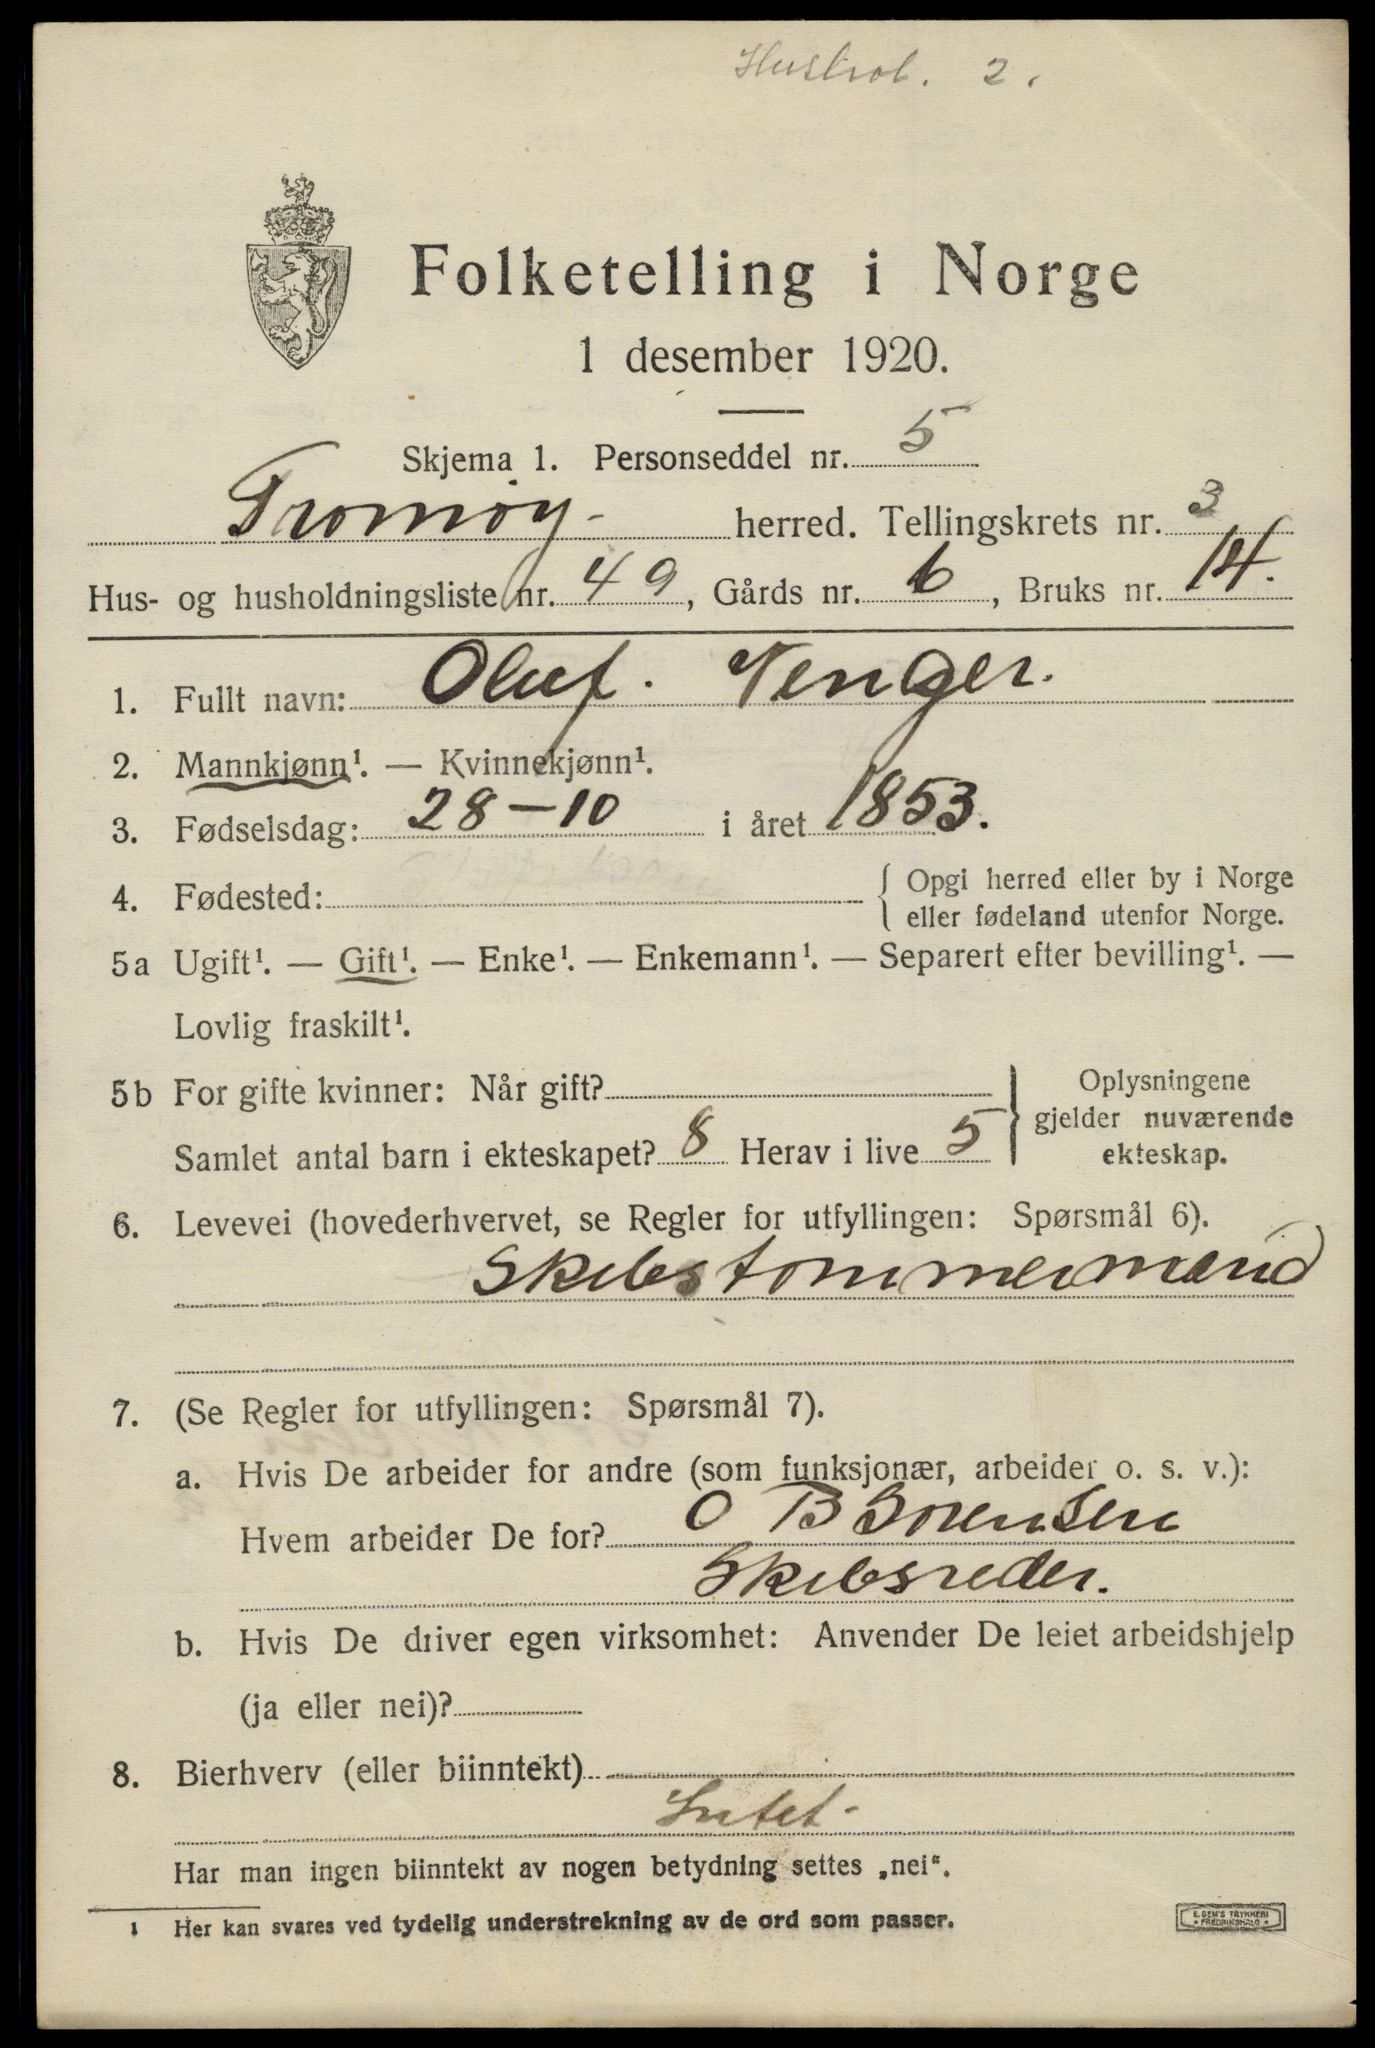 Hustrol. 2.
Folketelling i Norge
1 desember 1920.
Skjema 1. Personseddel nr. 5
Tromøy - herred. Tellingskrets nr. 3
Hus- og husholdningsliste nr. 49, Gårds nr. 6, Bruks nr. 14.
1. Fullt navn: Oluf. Venger.
2. Mannkjønn¹. — Kvinnekjønn¹.
3. Fødselsdag: 28-10 i året 1853.
4. Fødested: { Opgi herred eller by i Norge
eller fødeland utenfor Norge.
5a Ugift¹. — Gift¹. — Enke¹. — Enkemann¹. — Separert efter bevilling¹. —
Lovlig fraskilt¹.
5b For gifte kvinner: Når gift?
Samlet antal barn i ekteskapet? 8 Herav i live 5
Oplysningene
gjelder nuværende
ekteskap.
6. Levevei (hovederhvervet, se Regler for utfyllingen: Spørsmål 6).
Skibstømmermand
7. (Se Regler for utfyllingen: Spørsmål 7).
a. Hvis De arbeider for andre (som funksjonær, arbeider o. s. v.):
Hvem arbeider De for? O B Sørensen
Skibsreder.
b. Hvis De driver egen virksomhet: Anvender De leiet arbeidshjelp
(ja eller nei)?
8. Bierhverv (eller biinntekt)
Intet-
Har man ingen biinntekt av nogen betydning settes „nei“.
1 Her kan svares ved tydelig understrekning av de ord som passer.
E. SEM'S TRYKKERI
• FREDRIKSHALD •